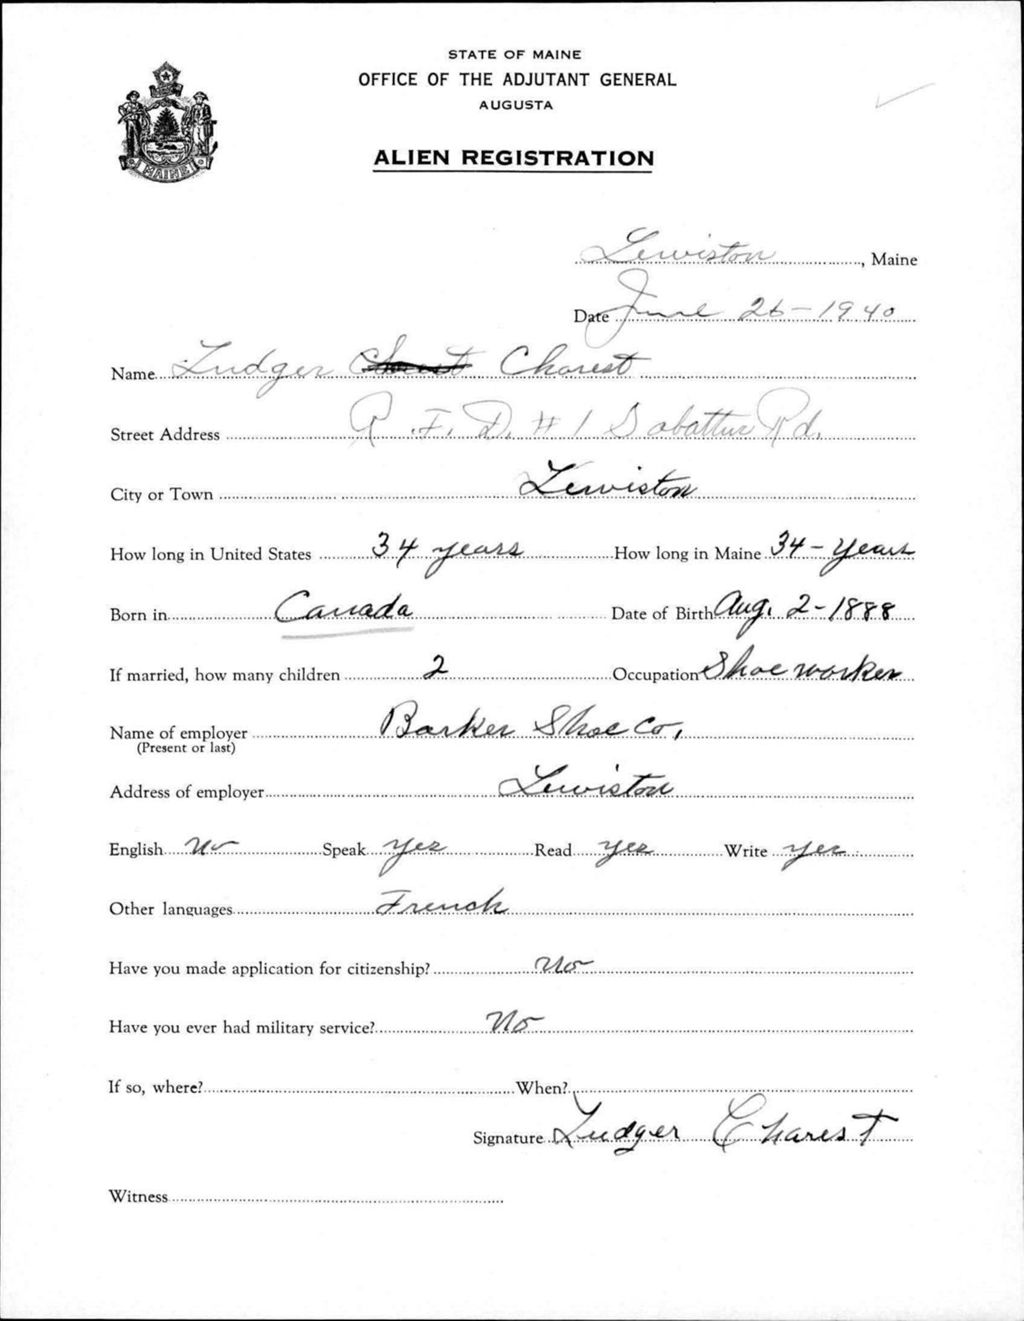 STATE OF MAINE
OFFICE OF THE ADJUTANT GENERAL
AUGUSTA
ALIEN REGISTRATION
MAINE
Lewiston, Maine
Date June 26-1940
Name Ludger Charest
Street Address R.F.D. #1 Sabattus Rd.
City or Town Lewiston
How long in United States 34 years How long in Maine 34-years
Born in Canada Date of Birth Aug. 2-1888
If married, how many children 2 Occupation Shoe worker
Name of employer Barker Shoe Co.
(Present or last)
Address of employer Lewiston
English No Speak yes Read yes Write yes
Other languages French
Have you made application for citizenship? No
Have you ever had military service? No
If so, where? When?
Signature Ludger Charest
Witness